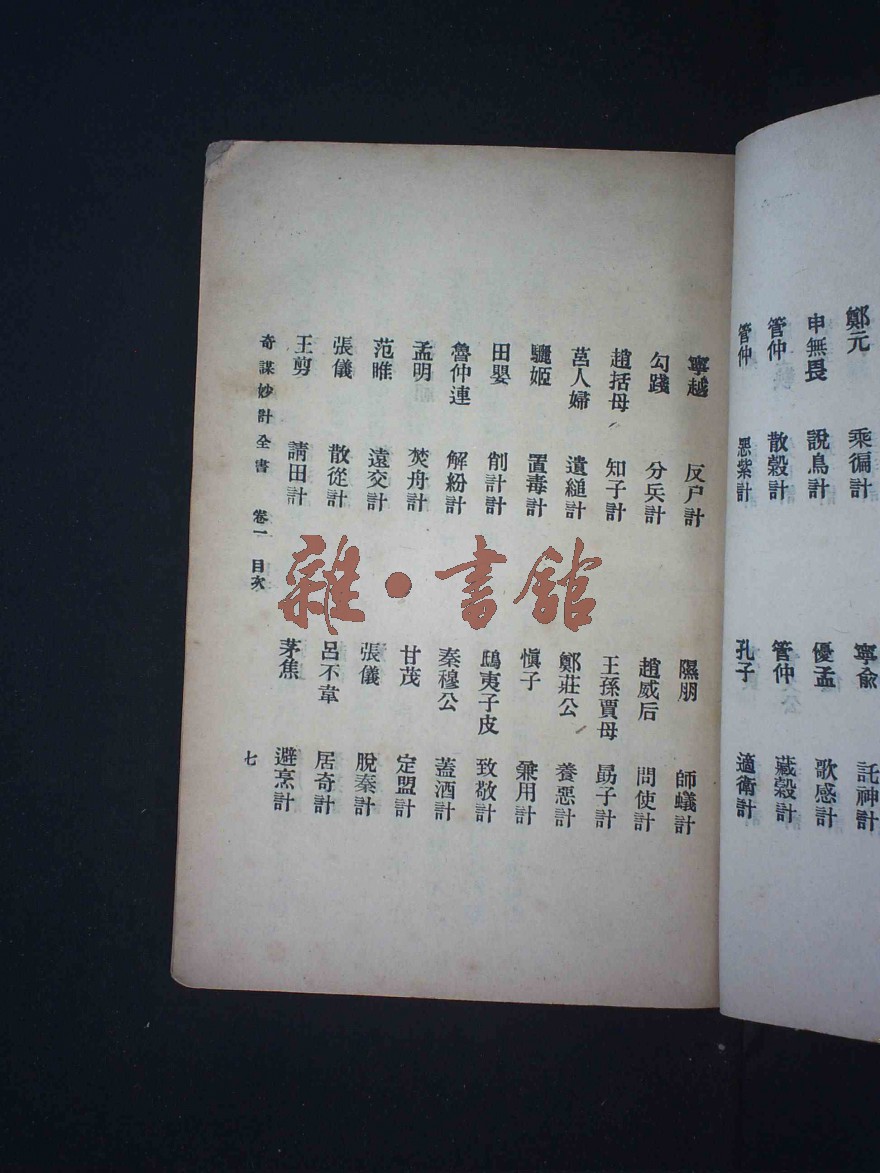 鄭元 乘徧計 寧俞 託神計
申無畏 說鳥計 優孟 歌感計
管仲 散穀計 管仲 藏穀計
管仲 惡紫計 孔子 適衛計
寧越 反尸計 隰朋 師蟻計
勾踐 分兵計 趙威后 問使計
趙括母 知子計 王孫賈母 勗子計
莒人婦 遺縋計 鄭莊公 養惡計
驪姬 置毒計 愼子 兼用計
田嬰 削計計 鴟夷子皮 致敬計
魯仲連 解紛計 秦穆公 蓋酒計
孟明 焚舟計 甘茂 定盟計
范睢 遠交計 張儀 脫秦計
張儀 散從計 呂不韋 居奇計
王剪 請田計 茅焦 避烹計
奇謀妙計全書 卷一 目次 七
雜·書館